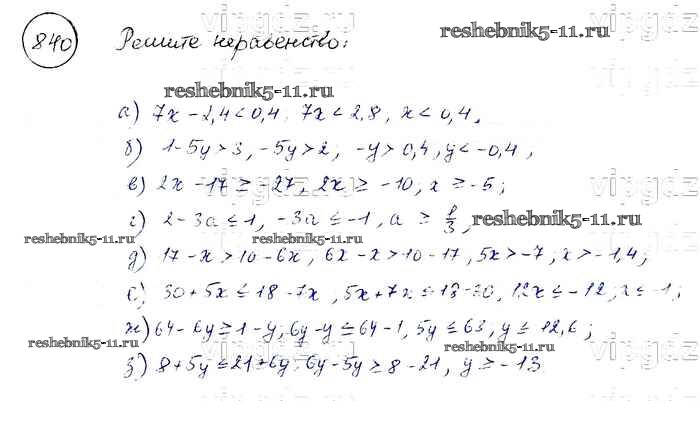 840 Решите неравенство:
reshebnik5-11.ru
reshebnik5-11.ru
а) 7x - 2,4 < 0,4, 7x < 2,8, x < 0,4,
б) 1-5y > 3, -5y > 2, -y > 0,4, y < -0,4,
в) 2x - 17 ≥ -27, 2x ≥ -10, x ≥ -5;
г) 2 - 3a ≤ 1, -3a ≤ -1, a ≥ 1/3, reshebnik5-11.ru
reshebnik5-11.ru reshebnik5-11.ru
д) 17 - x > 10 - 6x, 6x - x > 10 - 17, 5x > -7, x > -1,4;
е) 30 + 5x ≤ 18 - 7x, 5x + 7x ≤ 18-30, 12x ≤ -12, x ≤ -1;
ж) 64 - 6y ≥ 1 - y, 6y - y ≤ 64 - 1, 5y ≤ 63, y ≤ 12,6;
reshebnik5-11.ru reshebnik5-11.ru
з) 8 + 5y ≤ 21 + 6y, 6y - 5y ≥ 8 - 21, y ≥ -13
vipgdz